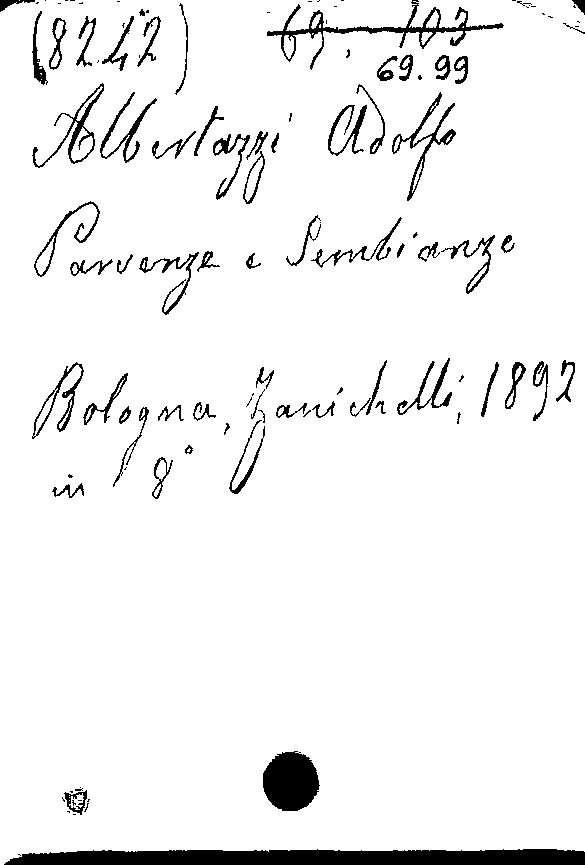 (8242) 69. 103
69.99
Albertazzi Adolfo
Parvenze e Sembianze
Bologna, Zanichelli, 1892
in 8°